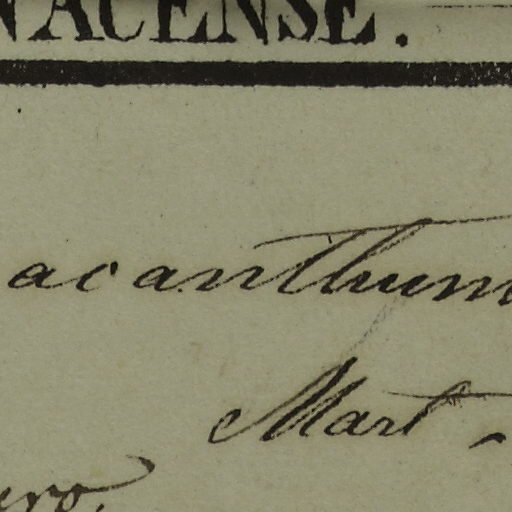 NACENSE.
acanthum
Mart.